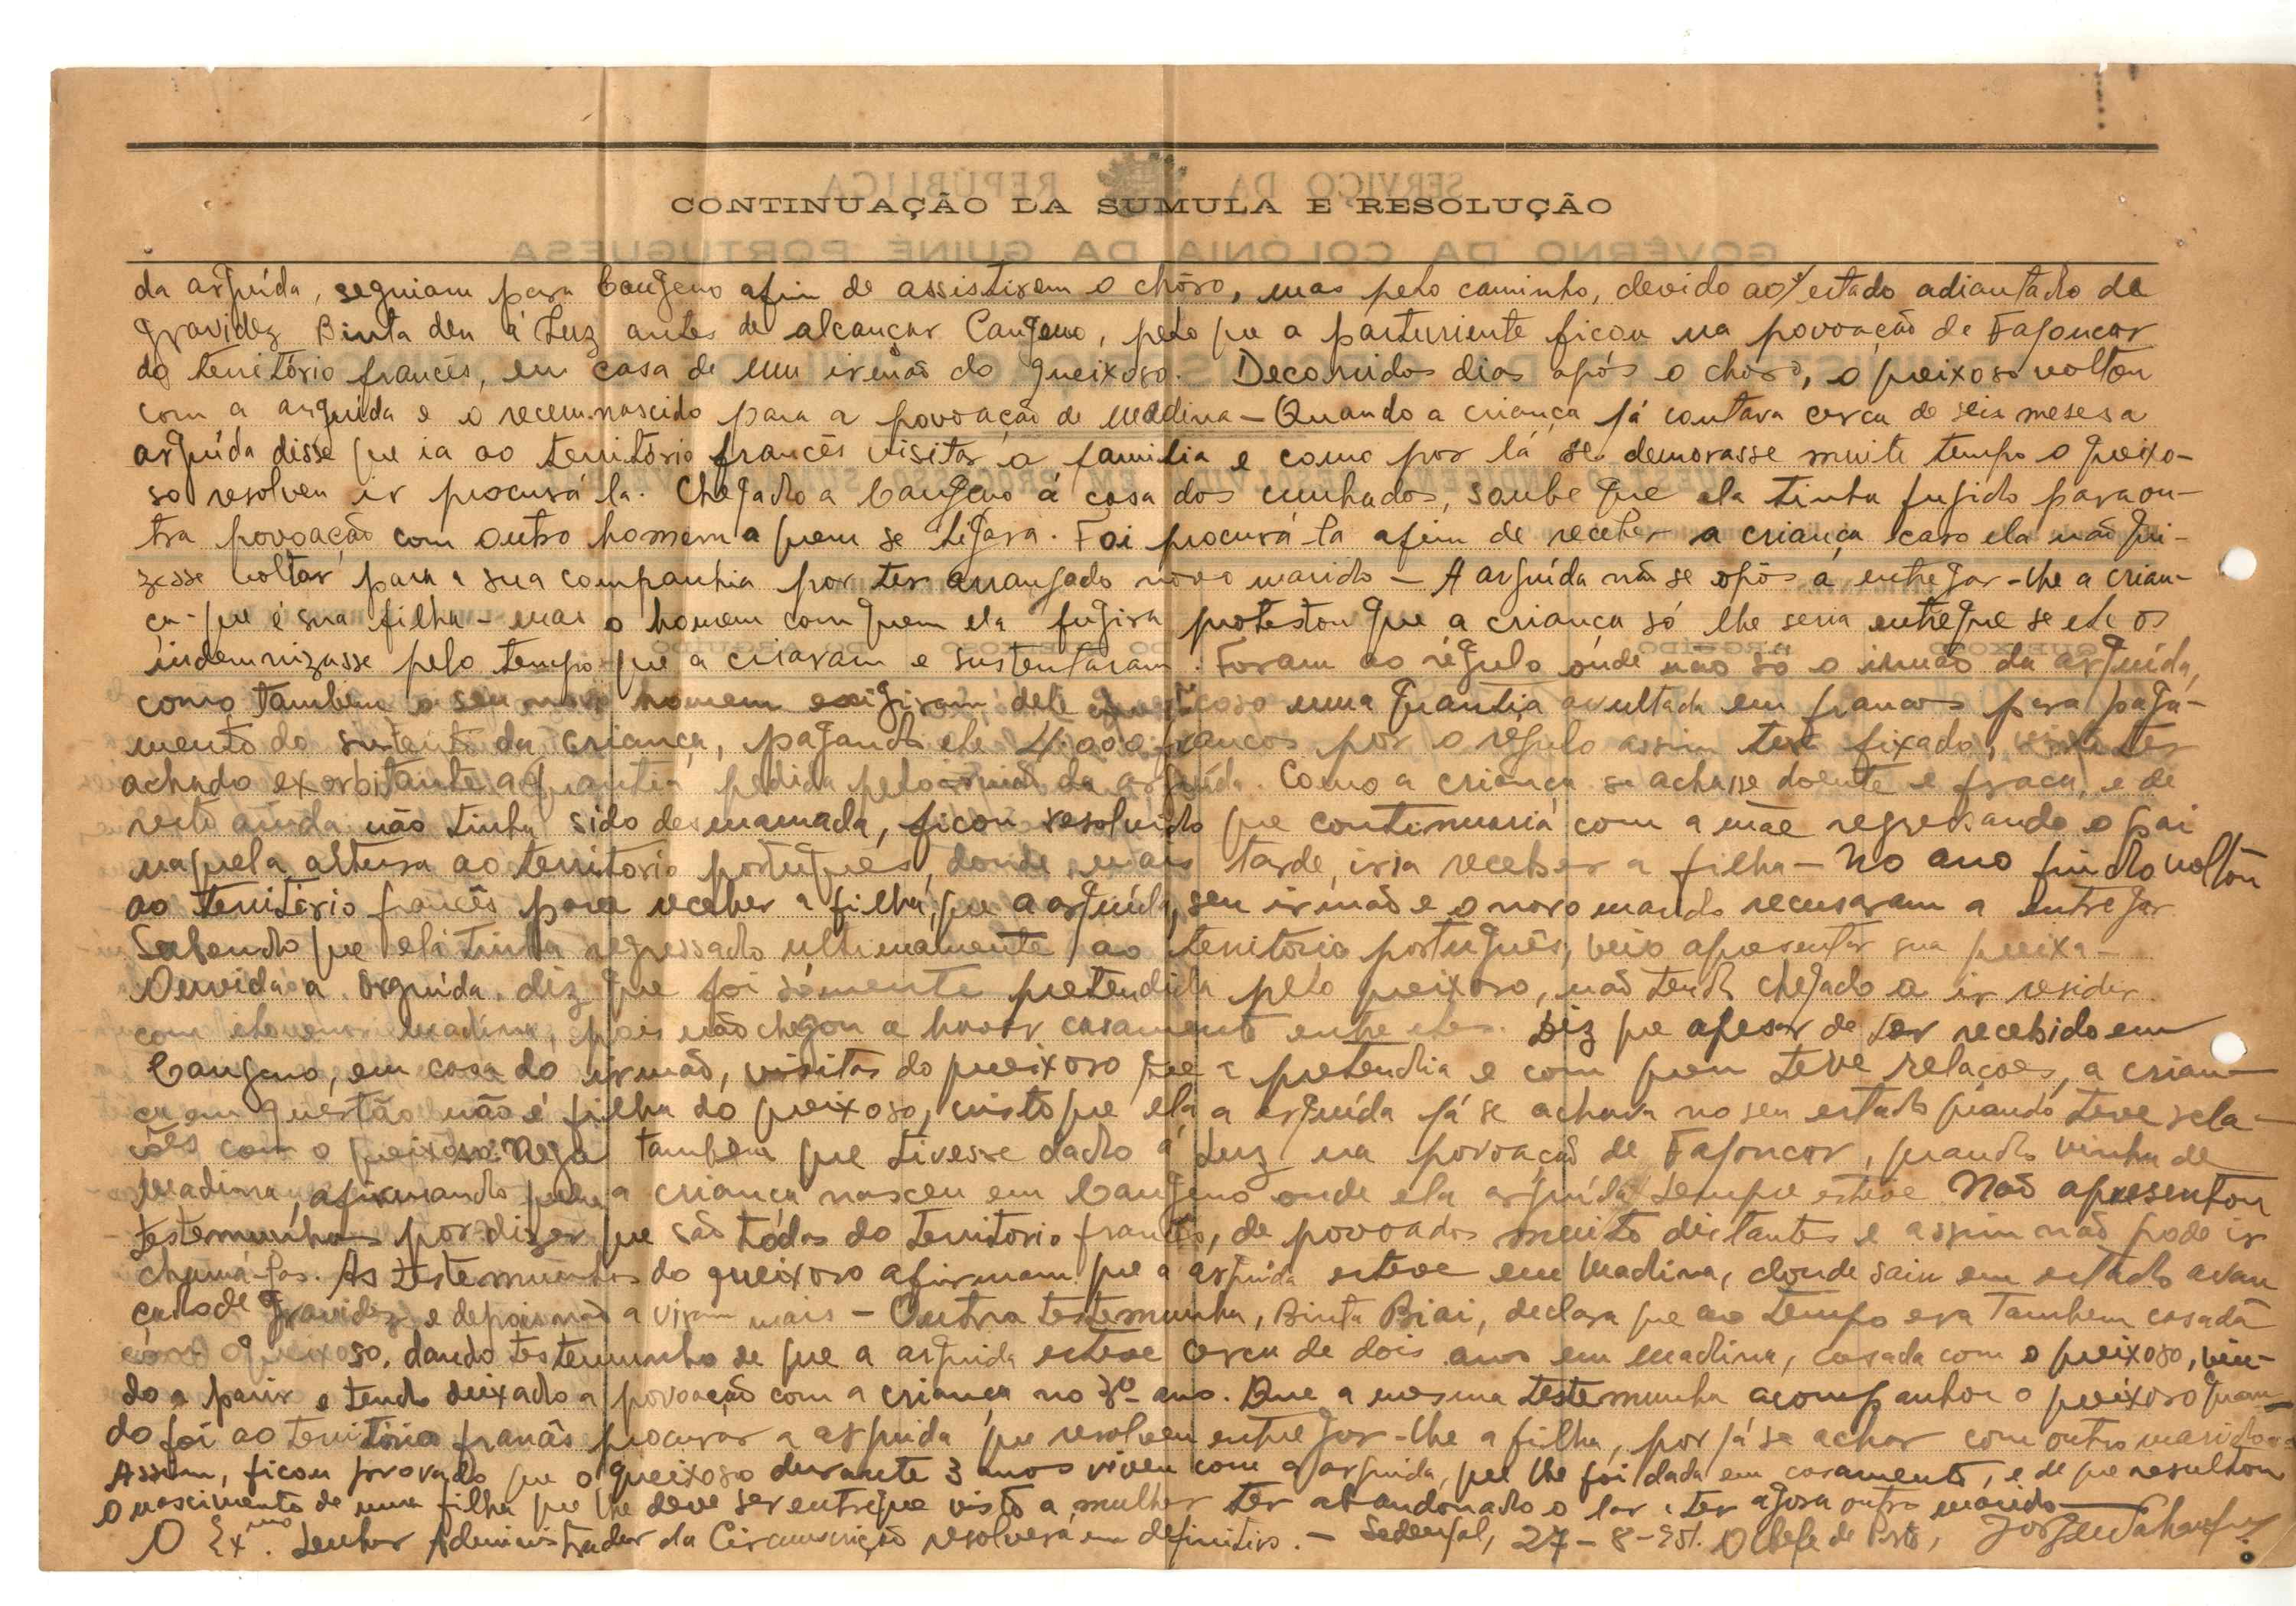 CONTINUAÇÃO DA SUMULA E RESOLUÇÃO
da arguída, seguiam para Cangeno afim de assistirem o chôro, mas pelo caminho, devido ao estado adiantado de
gravidez Binta deu à luz antes de alcançar Cangeno, pelo que a parturiente ficou na povoação de Fajoncor
do território francês, em casa de um irmão do queixoso. Decorridos dias após o choro, o queixoso voltou
com a arguida e o recem-nascido para a povoação de Madina – Quando a criança já contava cerca de seis meses a
arguída disse que ia ao território francês visitar a familia e como por lá se demorasse muito tempo o queixo-
so resolveu ir procurá-la. Chegado a Cangeno á casa dos cunhados, soube que ela tinha fugido para ou-
tra povoação com outro homem a quem se ligara. Foi procurá-la afim de receber a criança caso ela não qui-
zesse voltar para a sua companhia por ter arranjado novo marido – A arguída não se opôs a entregar-lhe a crian-
ça – que é sua filha – mas o homem com quem ela fugira protestou que a criança só lhe seria entregue se ele os
indemnizasse pelo tempo que a criaram e sustentaram. Foram ao régulo onde não só o irmão da arguída,
como tambem o seu novo homem exigiram dele queixoso uma quantia avultada em francos para paga-
mento do sustento da criança, pagando ele 4.000 francos por o régulo assim ter fixado, ter
achado exorbitante a quantia pedida pelo irmão da arguída. Como a criança se achasse doente e fraca, e de
resto ainda não tinha sido desmamada, ficou resolvido que continuaria com a mãe regressando o pai
naquela altura ao território português, donde mais tarde, iria receber a filha – No ano findo voltou
ao território francês para receber a filha, que a arguída, seu irmão e o novo marido recusaram a entregar.
Sabendo que ela tinha regressado ultimamente ao território português, veio apresentar sua queixa –
Ouvida a arguída, diz que foi sómente pretendida pelo queixoso, não tendo chegado a ir residir
com ele em Madina, pois não chegou a haver casamento entre eles. Diz que apesar de ter recebido em
Cangeno, em casa do irmão, visitas do queixoso que a pretendia e com quem teve relações, a crian-
ça em questão não é filha do queixoso, visto que ela, a arguída já se achava no seu estado quando teve rela-
ções com o queixoso. Nega tambem que tivesse dado à luz na povoação de Fajoncor, quando vinha de
Madina, afirmando que a criança nasceu em Cangeno onde ela arguída sempre esteve. Não apresentou
testemunhas por dizer que são tôdas do território francês, de povoados muito distantes e assim não pode ir
chamá-las. As testemunhas do queixoso afirmam que a arguída esteve em Madina, donde saiu em estado avan
çado de gravidez e depois não a viram mais – Outra testemunha, Binta Biai, declara que ao tempo era tambem casada
com o queixoso, dando testemunho de que a arguida esteve cerca de dois anos em Madina, casada com o queixoso, vin-
do a parir e tendo deixado a povoação com a criança no 3º ano. Que a mesma testemunha acompanhou o queixoso quan-
do foi ao território francês procurar a arguida que resolveu entregar-lhe a filha, por já se achar com outro marido –
Assim, ficou provado que o queixoso durante 3 anos viveu com a arguida, que lhe foi dada em casamento, e de que resultou
o nascimento de uma filha que lhe deve ser entregue visto a mulher ter abandonado o lar e ter agora outro marido –
O Exmo. Senhor Administrador da Circunscrição resolverá em definitivo. – Sedengal, 27-8-951. O Chefe de Posto,